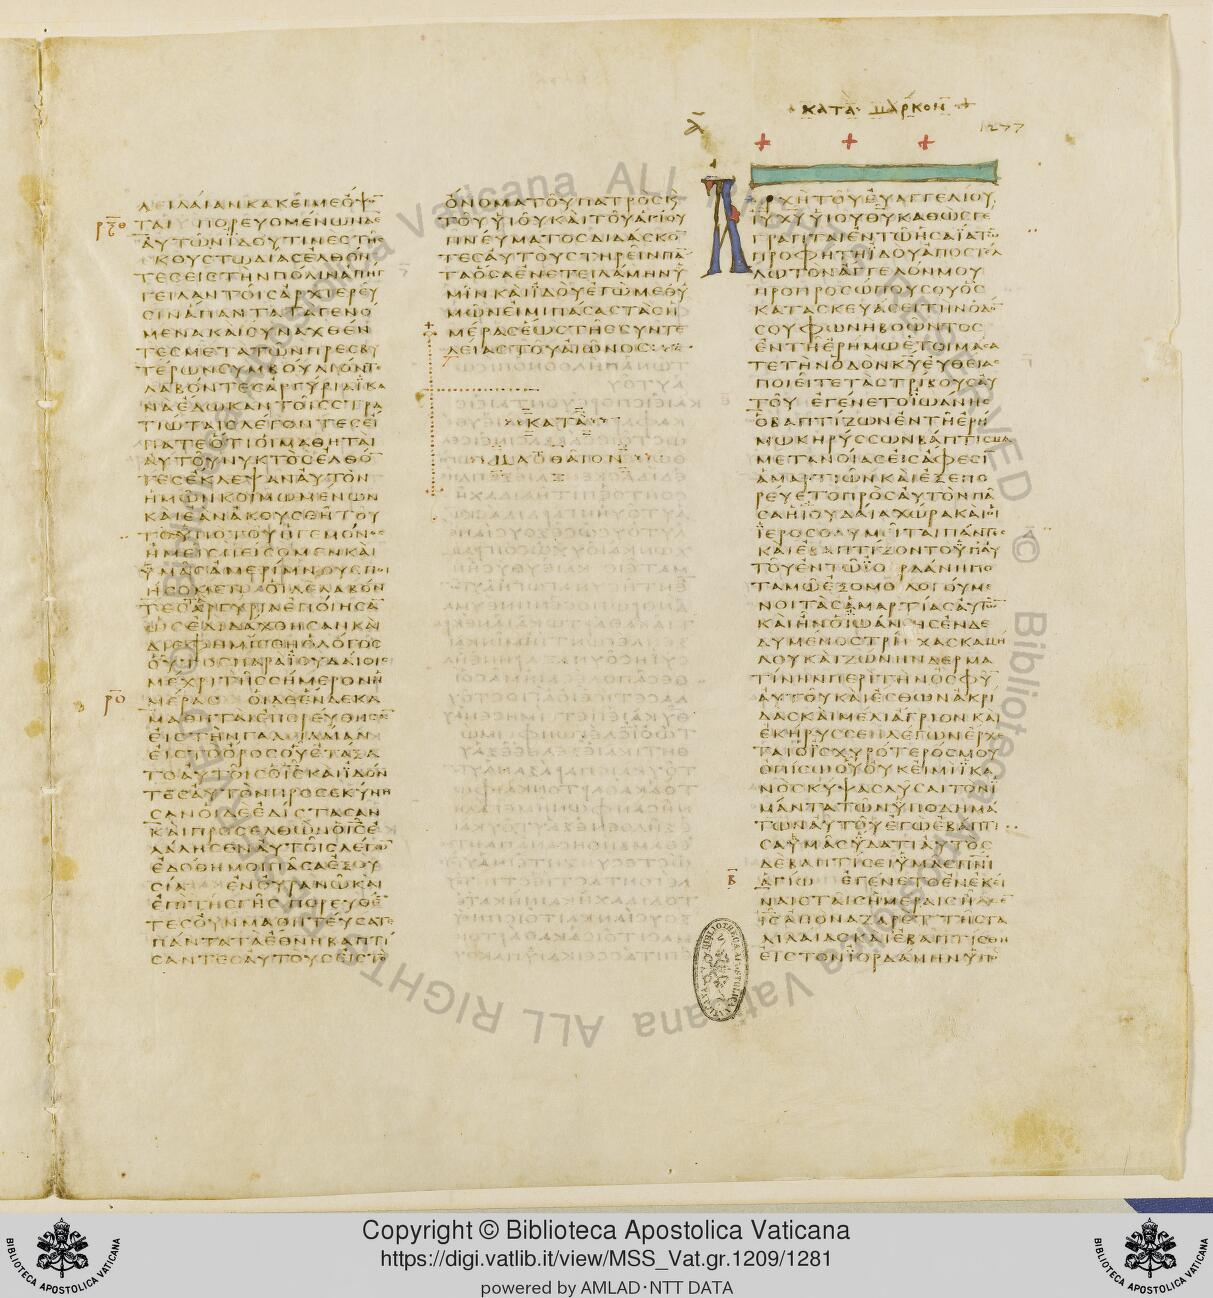 ΚΑΤΑ ΜΑΡΚΟΝ
1277
ΛΕΙΛΑΙΑΝ ΚΑΚΕΙ ΜΕ ΟΨΟ̅
ΤΑΙ ΠΟΡΕΥΟΜΕΝΩΝ ΔΕ
ΑΥΤΩΝ ΙΔΟΥ ΤΙΝΕΣ ΤΗΣ
ΚΟΥΣΤΩΔΙΑΣ ΕΛΘΟΝ
ΤΕΣ ΕΙΣ ΤΗΝ ΠΟΛΙΝ ΑΠΗΓ
ΓΕΙΛΑΝ ΤΟΙΣ ΑΡΧΙΕΡΕΥ
ΣΙΝ ΑΠΑΝΤΑ ΤΑ ΓΕΝΟ
ΜΕΝΑ ΚΑΙ ΣΥΝΑΧΘΕΝ
ΤΕΣ ΜΕΤΑ ΤΩΝ ΠΡΕΣΒΥ
ΤΕΡΩΝ ΣΥΜΒΟΥΛΙΟΝ Τ
ΛΑΒΟΝΤΕΣ ΑΡΓΥΡΙΑ ΙΚΑ
ΝΑ ΕΔΩΚΑΝ ΤΟΙΣ ΣΤΡΑ
ΤΙΩΤΑΙΣ ΛΕΓΟΝΤΕΣ ΕΙ
ΠΑΤΕ ΟΤΙ ΟΙ ΜΑΘΗΤΑΙ
ΑΥΤΟΥ ΝΥΚΤΟΣ ΕΛΘΟ̅
ΤΕΣ ΕΚΛΕΨΑΝ ΑΥΤΟΝ
ΗΜΩΝ ΚΟΙΜΩΜΕΝΩΝ
ΚΑΙ ΕΑΝ ΑΚΟΥΣΘΗ ΤΟΥ
ΤΟ ΥΠΟ ΤΟΥ ΗΓΕΜΟΝΟΣ
ΗΜΕΙΣ ΠΕΙΣΟΜΕΝ ΚΑΙ
ΥΜΑΣ ΑΜΕΡΙΜΝΟΥΣ ΠΟΙ
ΗΣΟΜΕΝ ΟΙ ΔΕ ΛΑΒΟΝ
ΤΕΣ ΑΡΓΥΡΙΑ ΕΠΟΙΗΣΑ̅
ΩΣ ΕΔΙΔΑΧΘΗΣΑΝ ΚΑΙ
ΔΙΕΦΗΜΙΣΘΗ Ο ΛΟΓΟΣ
ΟΥΤΟΣ ΠΑΡΑ ΙΟΥΔΑΙΟΙΣ
ΜΕΧΡΙ ΤΗΣ ΣΗΜΕΡΟΝ Η
ΜΕΡΑΣ ΟΙ ΔΕ ΕΝΔΕΚΑ
ΜΑΘΗΤΑΙ ΕΠΟΡΕΥΘΗΣΑ̅
ΕΙΣ ΤΗΝ ΓΑΛΙΛΑΙΑΝ
ΕΙΣ ΤΟ ΟΡΟΣ ΟΥ ΕΤΑΞΑ
ΤΟ ΑΥΤΟΙΣ Ο ΙΣ ΚΑΙ ΙΔΟΝ
ΤΕΣ ΑΥΤΟΝ ΠΡΟΣΕΚΥΝΗ
ΣΑΝ ΟΙ ΔΕ ΕΔΙΣΤΑΣΑΝ
ΚΑΙ ΠΡΟΣΕΛΘΩΝ Ο ΙΣ Ε
ΛΑΛΗΣΕΝ ΑΥΤΟΙΣ ΛΕΓΩ̅
ΕΔΟΘΗ ΜΟΙ ΠΑΣΑ ΕΞΟΥ
ΣΙΑ ΕΝ ΟΥΡΑΝΩ ΚΑΙ
ΕΠΙ ΤΗΣ ΓΗΣ ΠΟΡΕΥΘΕ̅
ΤΕΣ ΟΥΝ ΜΑΘΗΤΕΥΣΑΤΕ
ΠΑΝΤΑ ΤΑ ΕΘΝΗ ΒΑΠΤΙ
ΣΑΝΤΕΣ ΑΥΤΟΥΣ ΕΙΣ ΤΟ
ΟΝΟΜΑ ΤΟΥ ΠΑΤΡΟΣ Κ
ΤΟΥ ΥΙΟΥ ΚΑΙ ΤΟΥ ΑΓΙΟΥ
ΠΝΕΥΜΑΤΟΣ ΔΙΔΑΣΚΟ̅
ΤΕΣ ΑΥΤΟΥΣ ΤΗΡΕΙΝ ΠΑ̅
ΤΑ ΟΣΑ ΕΝΕΤΕΙΛΑΜΗΝ Υ
ΜΙΝ ΚΑΙ ΙΔΟΥ ΕΓΩ ΜΕΘ Υ
ΜΩΝ ΕΙΜΙ ΠΑΣΑΣ ΤΑΣ Η
ΜΕΡΑΣ ΕΩΣ ΤΗΣ ΣΥΝΤΕ
ΛΕΙΑΣ ΤΟΥ ΑΙΩΝΟΣ
ΚΑΤΑ
ΜΑΘΘΑΙΟΝ
ΑΡΧΗ ΤΟΥ ΕΥΑΓΓΕΛΙΟΥ
ΙΥ ΧΥ ΥΙΟΥ ΘΥ ΚΑΘΩΣ ΓΕ
ΓΡΑΠΤΑΙ ΕΝ ΤΩ ΗΣΑΙΑ ΤΩ
ΠΡΟΦΗΤΗ ΙΔΟΥ ΑΠΟΣΤΕΛ
ΛΩ ΤΟΝ ΑΓΓΕΛΟΝ ΜΟΥ
ΠΡΟ ΠΡΟΣΩΠΟΥ ΣΟΥ ΟΣ
ΚΑΤΑΣΚΕΥΑΣΕΙ ΤΗΝ ΟΔΟ̅
ΣΟΥ ΦΩΝΗ ΒΟΩΝΤΟΣ
ΕΝ ΤΗ ΕΡΗΜΩ ΕΤΟΙΜΑΣΑ
ΤΕ ΤΗΝ ΟΔΟΝ ΚΥ ΕΥΘΕΙΑΣ
ΠΟΙΕΙΤΕ ΤΑΣ ΤΡΙΒΟΥΣ ΑΥ
ΤΟΥ ΕΓΕΝΕΤΟ ΙΩΑΝΗΣ
Ο ΒΑΠΤΙΖΩΝ ΕΝ ΤΗ ΕΡΗ
ΜΩ ΚΗΡΥΣΣΩΝ ΒΑΠΤΙΣΜΑ
ΜΕΤΑΝΟΙΑΣ ΕΙΣ ΑΦΕΣΙ̅
ΑΜΑΡΤΙΩΝ ΚΑΙ ΕΞΕΠΟ
ΡΕΥΕΤΟ ΠΡΟΣ ΑΥΤΟΝ ΠΑ
ΣΑ Η ΙΟΥΔΑΙΑ ΧΩΡΑ ΚΑΙ ΟΙ
ΙΕΡΟΣΟΛΥΜΕΙΤΑΙ ΠΑΝΤΕΣ
ΚΑΙ ΕΒΑΠΤΙΖΟΝΤΟ ΥΠ ΑΥ
ΤΟΥ ΕΝ ΤΩ ΙΟΡΔΑΝΗ ΠΟ
ΤΑΜΩ ΕΞΟΜΟΛΟΓΟΥΜΕ
ΝΟΙ ΤΑΣ ΑΜΑΡΤΙΑΣ ΑΥΤΩ̅
ΚΑΙ ΗΝ Ο ΙΩΑΝΗΣ ΕΝΔΕ
ΔΥΜΕΝΟΣ ΤΡΙΧΑΣ ΚΑΜΗ
ΛΟΥ ΚΑΙ ΖΩΝΗΝ ΔΕΡΜΑ
ΤΙΝΗΝ ΠΕΡΙ ΤΗΝ ΟΣΦΥ
ΑΥΤΟΥ ΚΑΙ ΕΣΘΩΝ ΑΚΡΙ
ΔΑΣ ΚΑΙ ΜΕΛΙ ΑΓΡΙΟΝ ΚΑΙ
ΕΚΗΡΥΣΣΕΝ ΛΕΓΩΝ ΕΡΧΕ
ΤΑΙ Ο ΙΣΧΥΡΟΤΕΡΟΣ ΜΟΥ
ΟΠΙΣΩ ΟΥ ΟΥΚ ΕΙΜΙ ΙΚΑ
ΝΟΣ ΚΥΨΑΣ ΛΥΣΑΙ ΤΟΝ Ι
ΜΑΝΤΑ ΤΩΝ ΥΠΟΔΗΜΑ
ΤΩΝ ΑΥΤΟΥ ΕΓΩ ΕΒΑΠΤΙ
ΣΑ ΥΜΑΣ ΥΔΑΤΙ ΑΥΤΟΣ
ΔΕ ΒΑΠΤΙΣΕΙ ΥΜΑΣ ΠΝΙ
ΑΓΙΩ ΕΓΕΝΕΤΟ ΕΝ ΕΚΕΙ
ΝΑΙΣ ΤΑΙΣ ΗΜΕΡΑΙΣ ΗΛΘΕ̅
ΙΣ ΑΠΟ ΝΑΖΑΡΕΤ ΤΗΣ ΓΑ
ΛΙΛΑΙΑΣ ΚΑΙ ΕΒΑΠΤΙΣΘΗ
ΕΙΣ ΤΟΝ ΙΟΡΔΑΝΗΝ ΥΠΟ
Copyright © Biblioteca Apostolica Vaticana
https://digi.vatlib.it/view/MSS_Vat.gr.1209/1281
powered by AMLAD·NTT DATA
BIBLIOTECA APOSTOLICA VATICANA
BIBLIOTECA APOSTOLICA VATICANA